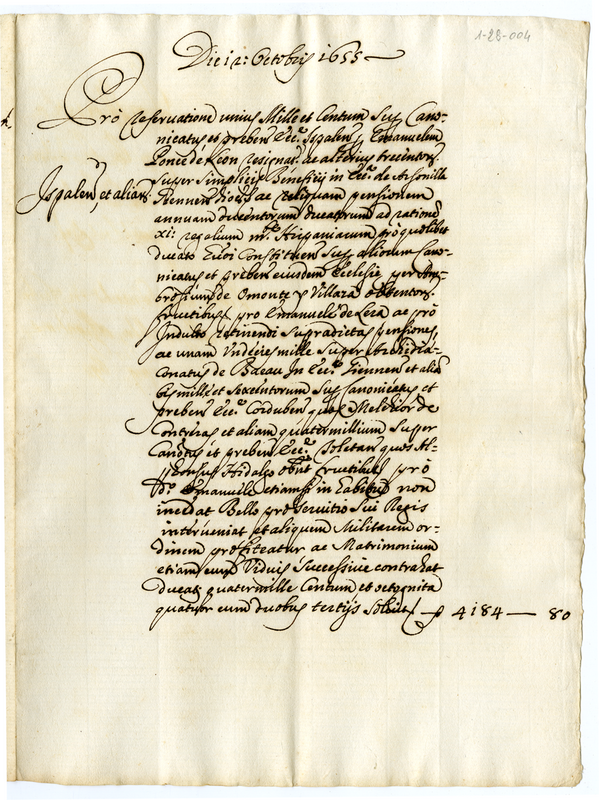 1-28-004
Die 12: Octobris 1655
Pro reservatione unius Mille et Centum Sup Cano-
nicatus et preben Ecc.ᵃ Ispalen p Emanuelem
Ponce de Leon resignat. ac alterius trecentor.
super simplici Beneficio in Ecc.ᵃ de
Ispalen, et aliar.
Gennen Dioces ac reliquam pensionem
annuam ducentorum ducatorum ad rationem
xi: regalium m.ᵗᵉ Hispaniarum pro quolibet
ducato Eidem Constituen Sup aliorum Cano-
nicatus et preben eiusdem Ecclesie per Am-
brosium de Omonte y Villara obtentor.
fructibus pro Emanuele de Lera ac pro
Indulto retinendi supradictas pensiones,
ac unam Undecies mille super Archidia-
conatus de Baeau In Ecc.ᵃ Giennen et alia
bis mille et Sexcentorum Sup Canonicatus et
preben Ecc.ᵃ Corduben quos Melchior de
Contreras et aliam quatermillium super
Canotus et preben Ecc.ᵃ Toletan quos Al-
phonsus Hidalgo obtint fructibus pro
D.º Emanuele etiamsi in habitu non
incedat Bello pro servitio Sui Regis
interveniat et aliquem Militarem or-
dinem profiteatur ac Matrimonium
etiam cum Viduis Successive contrahat
ducat quatermille Centum et octoginta
quatuor cum duobus tertijs Solvit p 4184 — 80